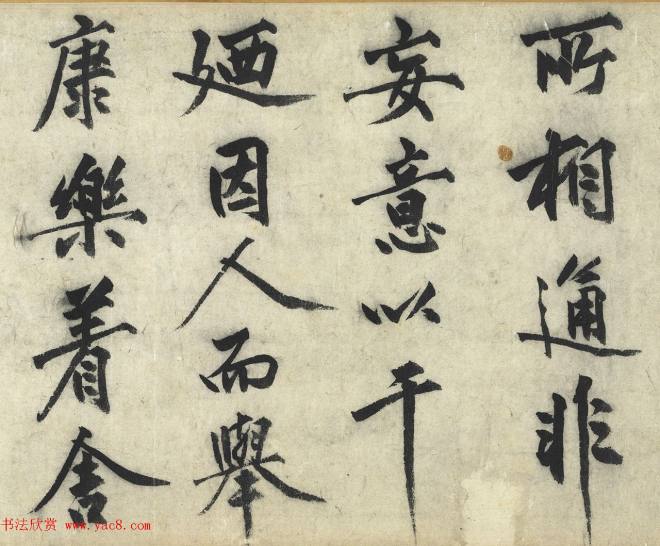 所相通非
妄意以干
廼因人而舉
康樂着舍
书法欣赏 www.yac8.com